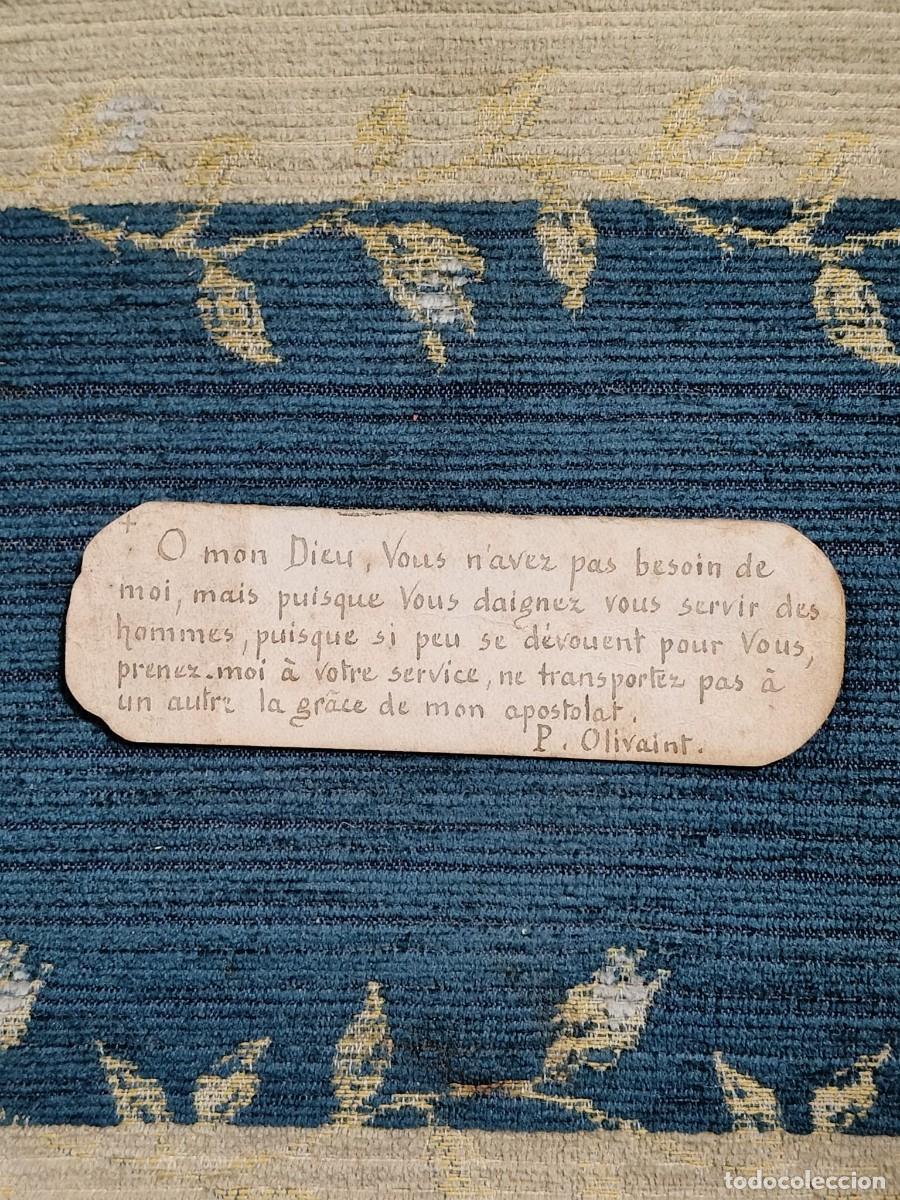 +
O mon Dieu, Vous n'avez pas besoin de
moi, mais puisque Vous daignez vous servir des
hommes, puisque si peu se dévouent pour Vous,
prenez-moi à votre service, ne transportez pas à
un autre la grâce de mon apostolat.
P. Olivaint.
todocoleccion